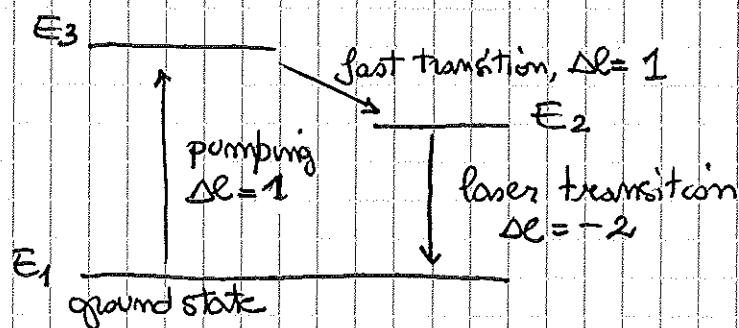 E3
fast transition, Δℓ= 1
E2
pumping
Δℓ=1
laser transition
Δℓ=-2
E1
ground state